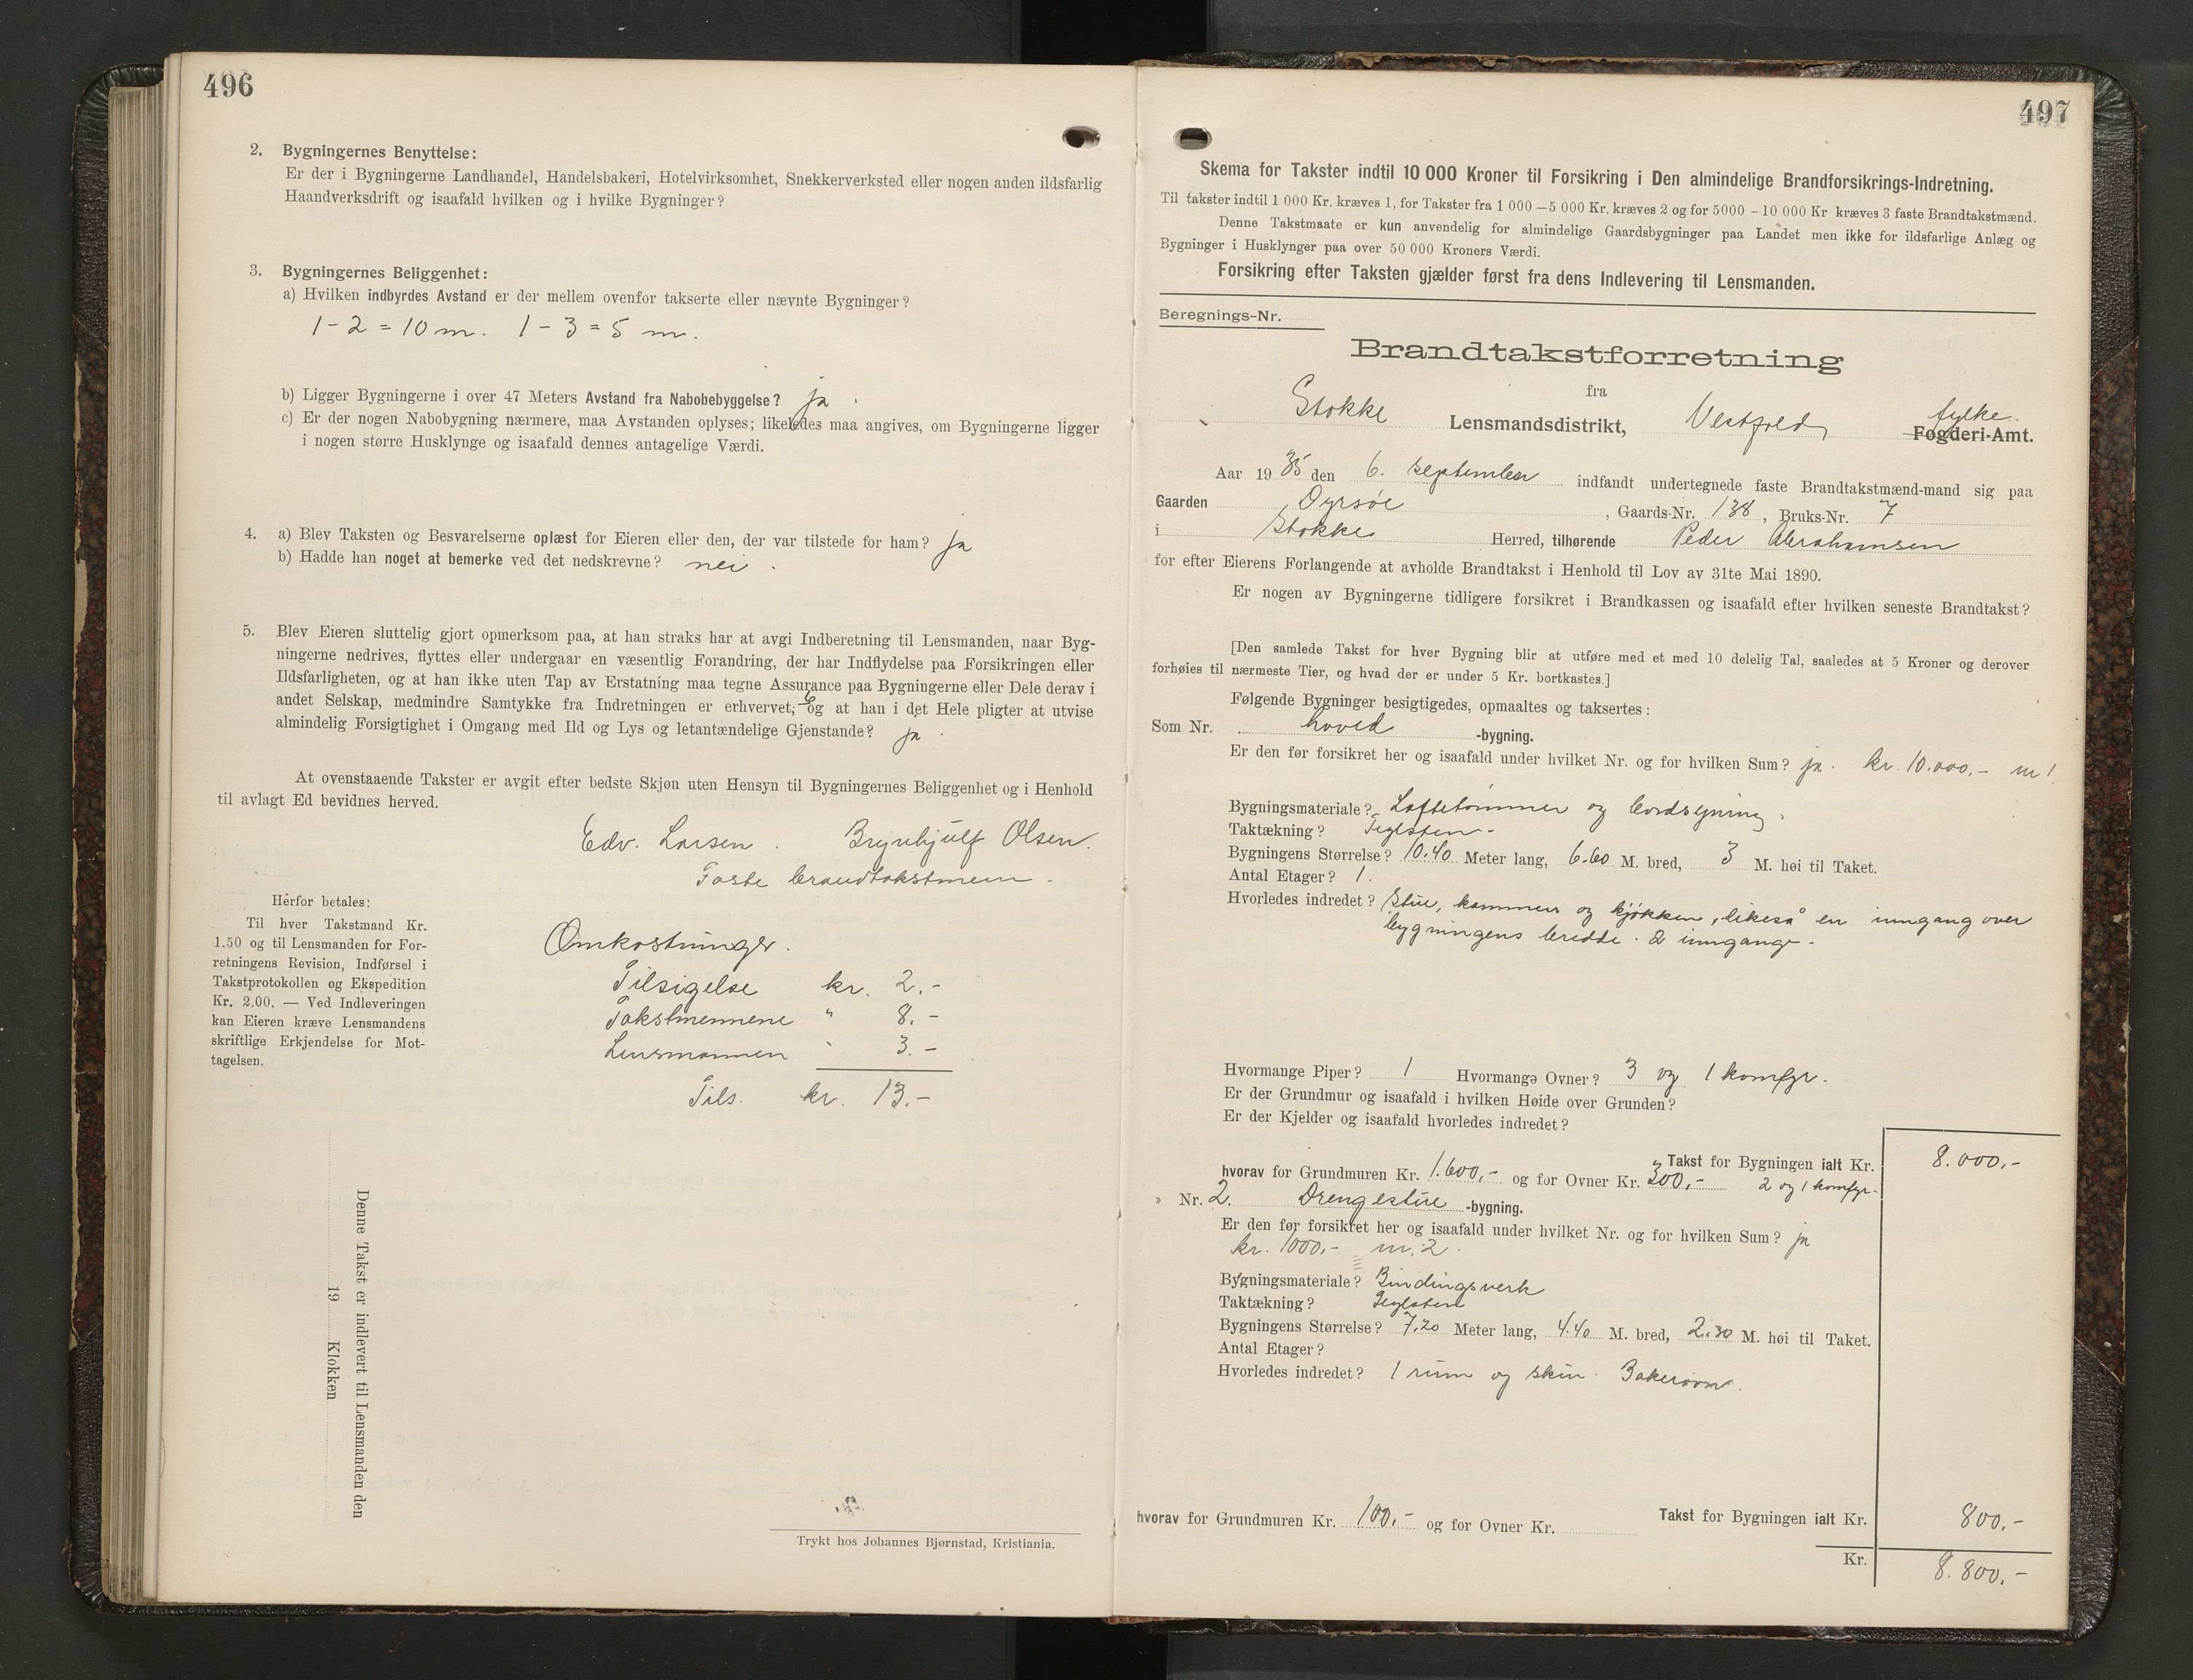 496
2. Bygningernes Benyttelse:
Er der i Bygningerne Landhandel, Handelsbakeri, Hotelvirksomhet, Snekkerverksted eller nogen anden ildsfarlig
Haandverksdrift og isaafald hvilken og i hvilke Bygninger?
3. Bygningernes Beliggenhet:
a) Hvilken indbyrdes Avstand er der mellem ovenfor takserte eller nævnte Bygninger?
1-2 = 10 m. 1-3 = 5 m.
b) Ligger Bygningerne i over 47 Meters Avstand fra Nabobebyggelse? ja.
c) Er der nogen Nabobygning nærmere, maa Avstanden oplyses; likeledes maa angives, om Bygningerne ligger
i nogen større Husklynge og isaafald dennes antagelige Værdi.
4. a) Blev Taksten og Besvarelserne oplæst for Eieren eller den, der var tilstede for ham? ja
b) Hadde han noget at bemerke ved det nedskrevne? nei.
5. Blev Eieren sluttelig gjort opmerksom paa, at han straks har at avgi Indberetning til Lensmanden, naar Byg-
ningerne nedrives, flyttes eller undergaar en væsentlig Forandring, der har Indflydelse paa Forsikringen eller
Ildsfarligheten, og at han ikke uten Tap av Erstatning maa tegne Assurance paa Bygningerne eller Dele derav i
andet Selskap, medmindre Samtykke fra Indretningen er erhvervet; og at han i det Hele pligter at utvise
almindelig Forsigtighet i Omgang med Ild og Lys og letantændelige Gjenstande? ja.
At ovenstaaende Takster er avgit efter bedste Skjøn uten Hensyn til Bygningernes Beliggenhet og i Henhold
til avlagt Ed bevidnes herved.
Edv. Larsen. Brynhjulf Olsen.
Faste brandtakstmenn.
Herfor betales:
Til hver Takstmand Kr.
1.50 og til Lensmanden for For-
retningens Revision, Indførsel i
Takstprotokollen og Ekspedition
Kr. 2.00. — Ved Indleveringen
kan Eieren kræve Lensmandens
skriftlige Erkjendelse for Mot-
tagelsen.
Omkostninger.
Tilsigelse kr. 2.-
Takstmennene " 8.-
Lensmannen " 3.-
Tils. kr. 13.-
Denne Takst er indlevert til Lensmanden den
19 Klokken
Trykt hos Johannes Bjørnstad, Kristiania.
497
Skema for Takster indtil 10 000 Kroner til Forsikring i Den almindelige Brandforsikrings-Indretning.
Til takster indtil 1 000 Kr. kræves 1, for Takster fra 1 000 —5 000 Kr. kræves 2 og for 5000 - 10 000 Kr kræves 3 faste Brandtakstmænd.
Denne Takstmaate er kun anvendelig for almindelige Gaardsbygninger paa Landet men ikke for ildsfarlige Anlæg og
Bygninger i Husklynger paa over 50 000 Kroners Værdi.
Forsikring efter Taksten gjælder først fra dens Indlevering til Lensmanden.
Beregnings-Nr.
Brandtakstforretning
fra
Stokke Lensmandsdistrikt, Vestfold fylke.
Fogderi-Amt.
Aar 19 35 den 6. september indfandt undertegnede faste Brandtakstmænd-mand sig paa
Gaarden Dyrsøe, Gaards-Nr. 138, Bruks-Nr. 7
i Stokke Herred, tilhørende Peder Abrahamsen
for efter Eierens Forlangende at avholde Brandtakst i Henhold til Lov av 31te Mai 1890.
Er nogen av Bygningerne tidligere forsikret i Brandkassen og isaafald efter hvilken seneste Brandtakst?
[Den samlede Takst for hver Bygning blir at utføre med et med 10 delelig Tal, saaledes at 5 Kroner og derover
forhøies til nærmeste Tier, og hvad der er under 5 Kr. bortkastes.]
Følgende Bygninger besigtigedes, opmaaltes og taksertes:
Som Nr. hoved -bygning.
Er den før forsikret her og isaafald under hvilket Nr. og for hvilken Sum? ja. kr. 10.000,- nr 1.
Bygningsmateriale? Laftetømmer og bordsyning.
Taktækning? Teglsten.
Bygningens Størrelse? 10.40 Meter lang, 6.60 M. bred, 3 M. høi til Taket.
Antal Etager? 1.
Hvorledes indredet? Stue, kammers og kjøkken, likeså en inngang over
bygningens bredde. 2 innganger.
Hvormange Piper? 1 Hvormange Ovner? 3 og 1 komfyr.
Er der Grundmur og isaafald i hvilken Høide over Grunden?
Er der Kjelder og isaafald hvorledes indredet?
Takst for Bygningen ialt Kr. 8.000,-
hvorav for Grundmuren Kr. 1.600,- og for Ovner Kr. 300,- 2 og 1 komfyr.
» Nr. 2. Drengestue -bygning.
Er den før forsikret her og isaafald under hvilket Nr. og for hvilken Sum? ja
kr. 1000,- nr. 2.
Bygningsmateriale? Bindingsverk
Taktækning? Teglsten
Bygningens Størrelse? 7.20 Meter lang, 4.40 M. bred, 2.30 M. høi til Taket.
Antal Etager?
Hvorledes indredet? 1 rum og skur. Bakerovn.
hvorav for Grundmuren Kr. 100,- og for Ovner Kr. Takst for Bygningen ialt Kr. 800,-
Kr. 8.800,-